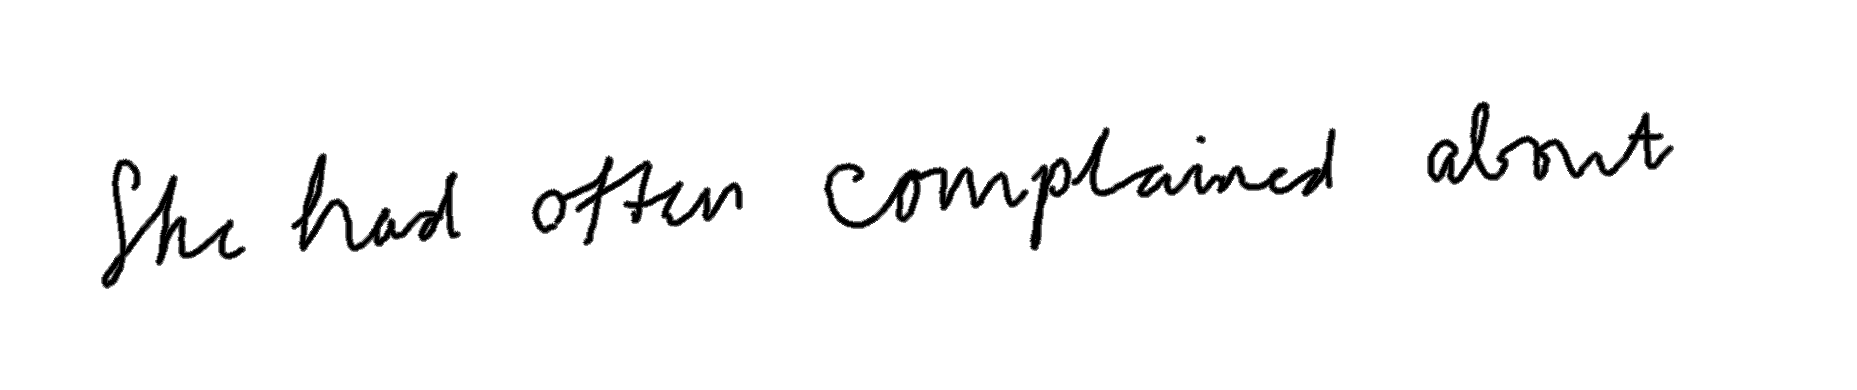 She had often complained about